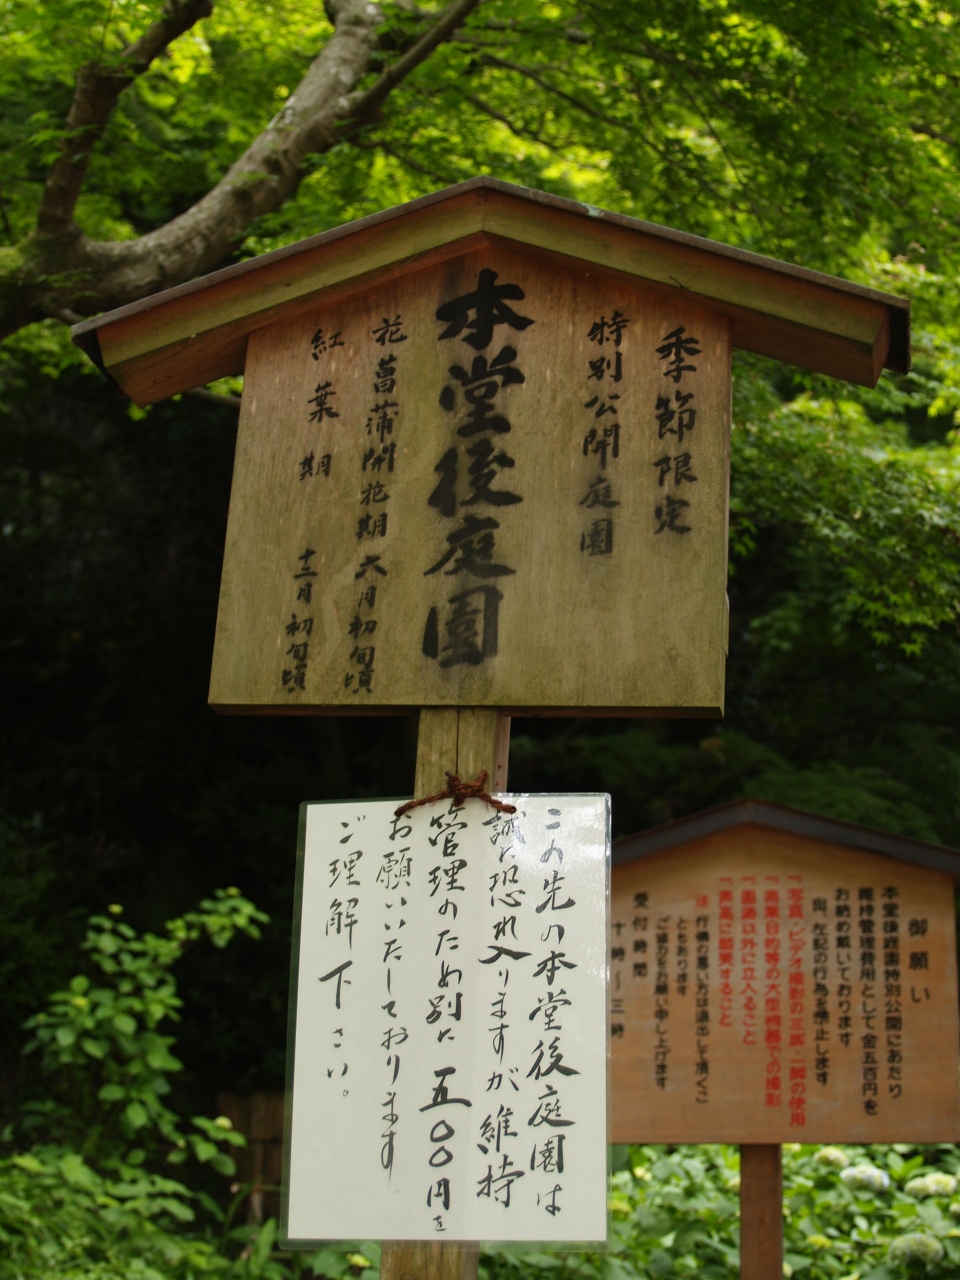 季節限定
特別公開庭園
本堂後庭園
花菖蒲開花期 六月初旬頃
紅葉期 十二月初旬頃
この先の本堂後庭園は
誠に恐れ入りますが維持
管理のため別に五〇〇円を
お願いいたしております
ご理解下さい。
御願い
本堂後庭園特別公開にあたり
維持管理費用として金五百円を
お納め戴いております
尚、左記の行為を停止します
「写真・ビデオ撮影の三脚・一脚の使用
「商業目的等の大型機器での撮影
「園路以外に立入ること
「声高に談笑すること
行儀の悪い方は退出して頂くこ
ともあります
ご協力をお願い申し上げます
受付時間
十時〜三時